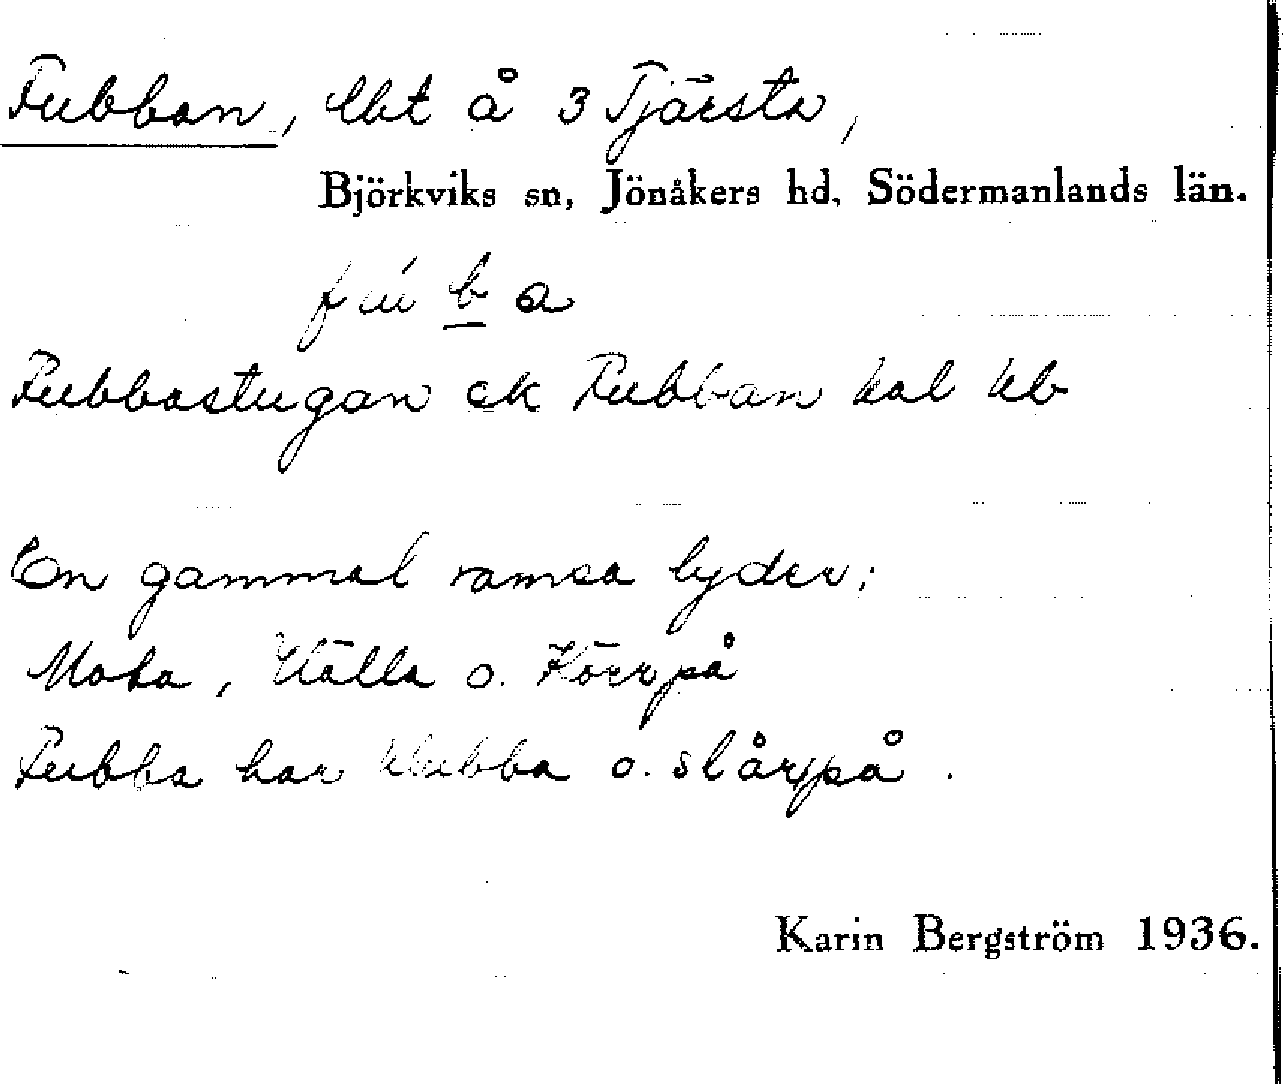 Fubban, lht å 3 Tjärsta,
Björkviks sn, Jönåkers hd, Södermanlands län.
fú b a
Fubbastugan ek Fubban hal kb
En gammal ramsa lyder;
Mosa, Hälla o. Körrpå
Fubba har klubba o. slår på.
Karin Bergström 1936.